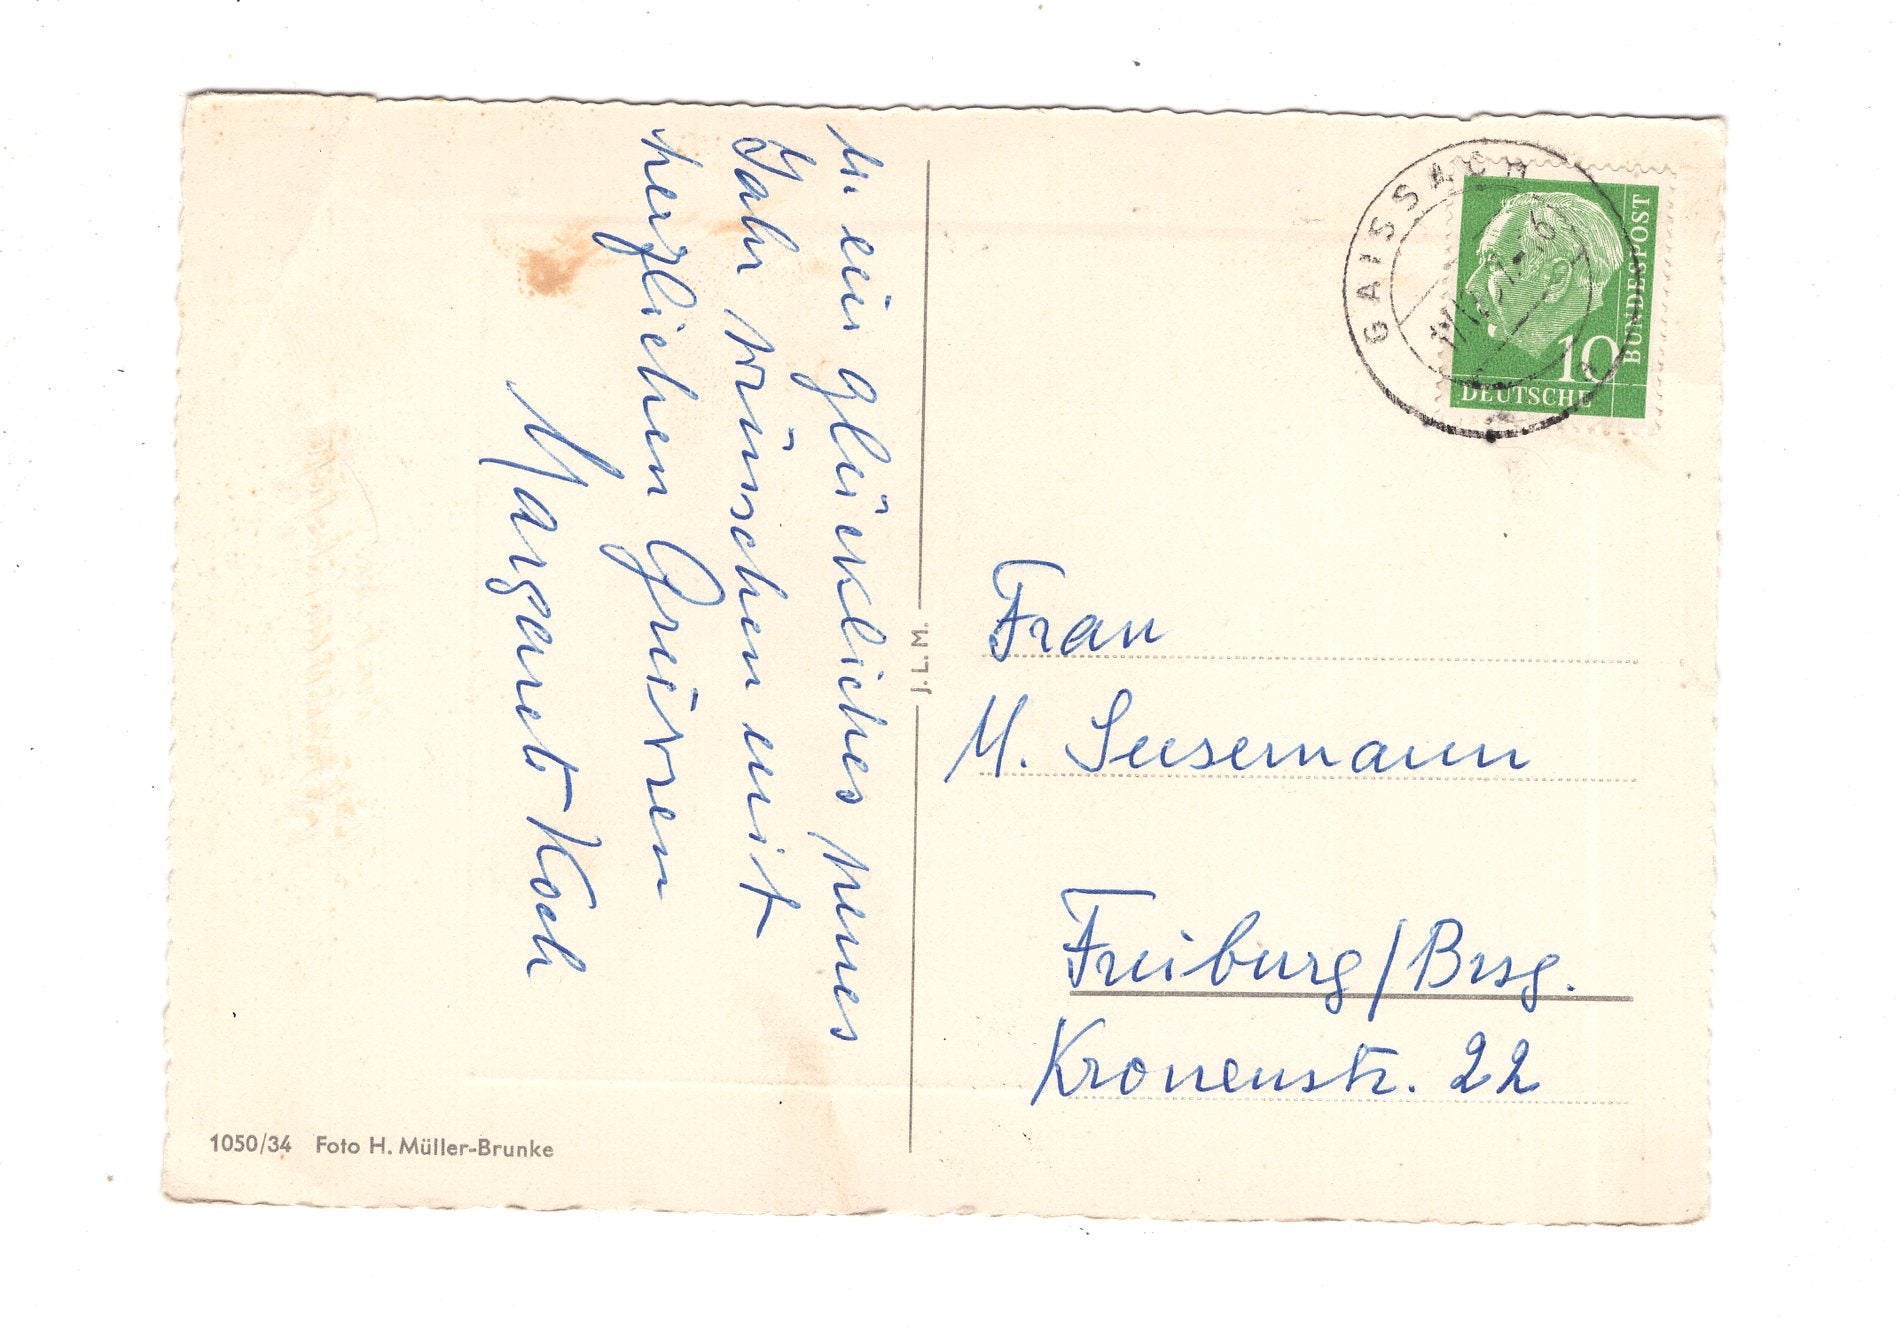 u. ein glückliches neues
Jahr wünschen mit
herzlichen Grüssen
Margaret Koch
J.L.M.
1050/34 Foto H. Müller-Brunke
GAISSACH
10
DEUTSCHE
BUNDESPOST
Frau
M. Susemann
Freiburg/Brsg.
Kronenstr. 22